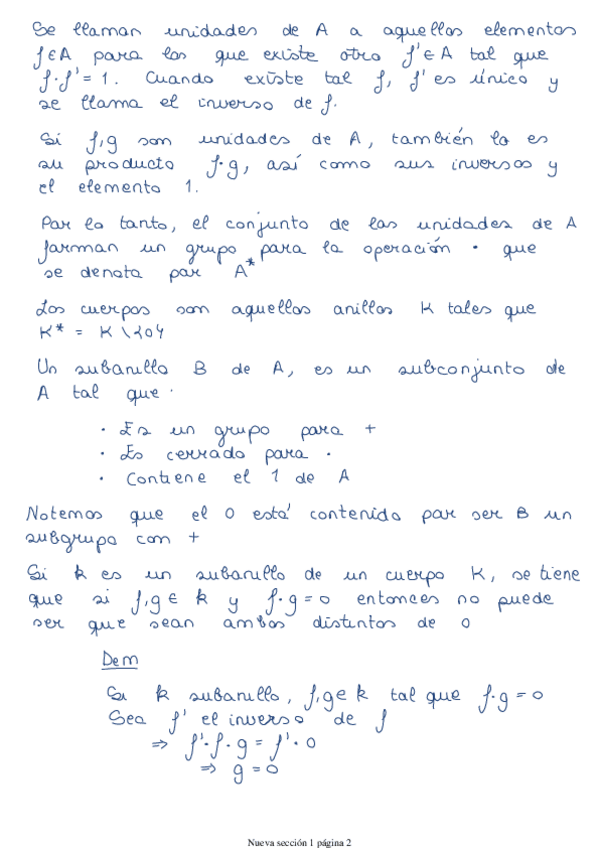 Se llaman unidades de A a aquellos elementos
f∈A para los que existe otro f'∈A tal que
f·f'=1. Cuando existe tal f, f' es único y
se llama el inverso de f.
Si f,g son unidades de A, también lo es
su producto f·g, así como sus inversos y
el elemento 1.
Por lo tanto, el conjunto de las unidades de A
forman un grupo para la operación · que
se denota por A*
Los cuerpos son aquellos anillos K tales que
K* = K\{0}
Un subanillo B de A, es un subconjunto de
A tal que ·
· Es un grupo para +
· Es cerrado para ·
· Contiene el 1 de A
Notemos que el 0 está contenido por ser B un
subgrupo con +
Si k es un subanillo de un cuerpo K, se tiene
que si f,g∈k y f·g=0 entonces no puede
ser que sean ambos distintos de 0
Dem
Si k subanillo, f,g∈k tal que f·g=0
Sea f' el inverso de f
⇒ f'·f·g = f'·0
⇒ g=0
Nueva sección 1 página 2